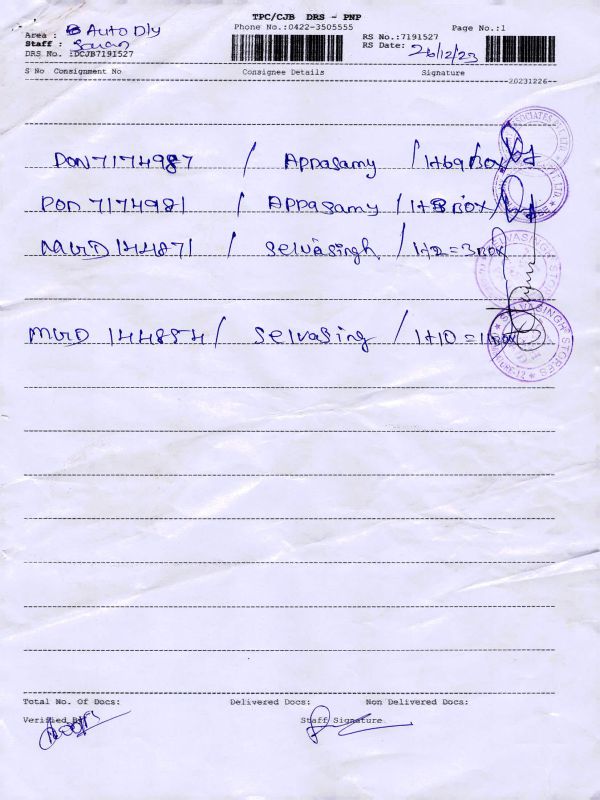 TPC/CJB DRS - PNP
Phone No.:0422-3505555
Page No.:1
Area : B Auto Dly
RS No.:7191527
Staff :
RS Date: 26/12/23
DRS No. :DCJB7191527
S No Consignment No Consignee Details Signature
--20231226--
PON 7174987 / Appasamy / 1+69 BOX
PON 7174981 / Appasamy / 1+8 BOX
MUD 144871 / Selvasingh / 1+2=3 BOX
MUD 144854 / Selvasing / 1+10=11 BOX
SELVASINGH STORES
SELVASINGH STORES
Total No. Of Docs: Delivered Docs: Non Delivered Docs:
Verified By Staff Signature